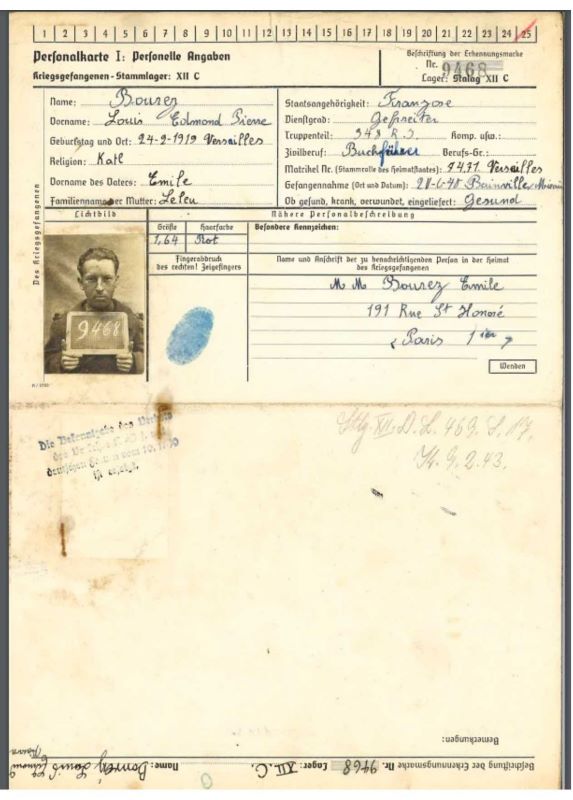 1 2 3 4 5 6 7 8 9 10 11 12 13 14 15 16 17 18 19 20 21 22 23 24 25
Personalkarte I: Personelle Angaben
Kriegsgefangenen-Stammlager: XII C
Beschriftung der Erkennungsmarke
Nr. 9468
Lager: Stalag XII C
Des Kriegsgefangenen
Name: Bourez
Vorname: Louis Edmond Pierre
Geburtstag und Ort: 24-2-1919 Versailles
Religion: Katl
Vorname des Vaters: Emile
Familienname der Mutter: Leleu
Staatsangehörigkeit: Franzose
Dienstgrad: Gefreiter
Truppenteil: 348 R.I. Komp. usw.:
Zivilberuf: Buchführer Berufs-Gr.:
Matrikel Nr. (Stammrolle des Heimatstaates): 9431 Versailles
Gefangennahme (Ort und Datum): 20-6-40 Bainville
Ob gesund, krank, verwundet, eingeliefert: Gesund
Lichtbild
Größe Haarfarbe
1,64 Rot
Fingerabdruck
des rechten! Zeigefingers
Nähere Personalbeschreibung
Besondere Kennzeichen:
Name und Anschrift der zu benachrichtigenden Person in der Heimat
des Kriegsgefangenen
M M Bourez Emile
191 Rue St Honoré
Paris 1ier
Wenden
9468
Die Bekanntgabe des
deutschen vom 10.1.
Stlg. XII. D. L. 469. S. 17.
9.2.43.
Bemerkungen:
Beschriftung der Erkennungsmarke Nr. 9468 Lager: XII. C. Name: Bourez Louis